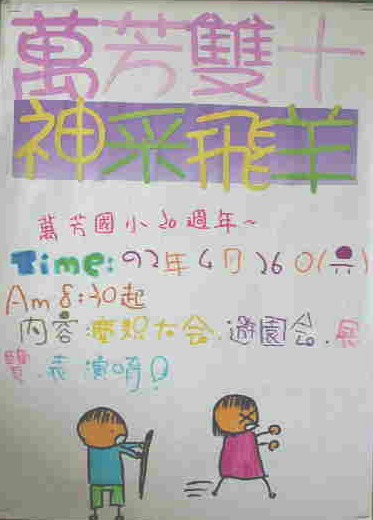 萬芳雙十
神采飛羊
萬芳國小20週年~
Time:92年4月26日(六)
Am 8:30起
內容:慶祝大會.遊園會.展
覽.表演唷!